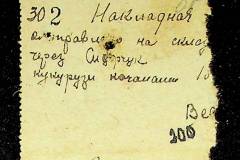 302 Накладная
отправлено на склад
через Сидорук
кукурузи качанами 18
Вес
200